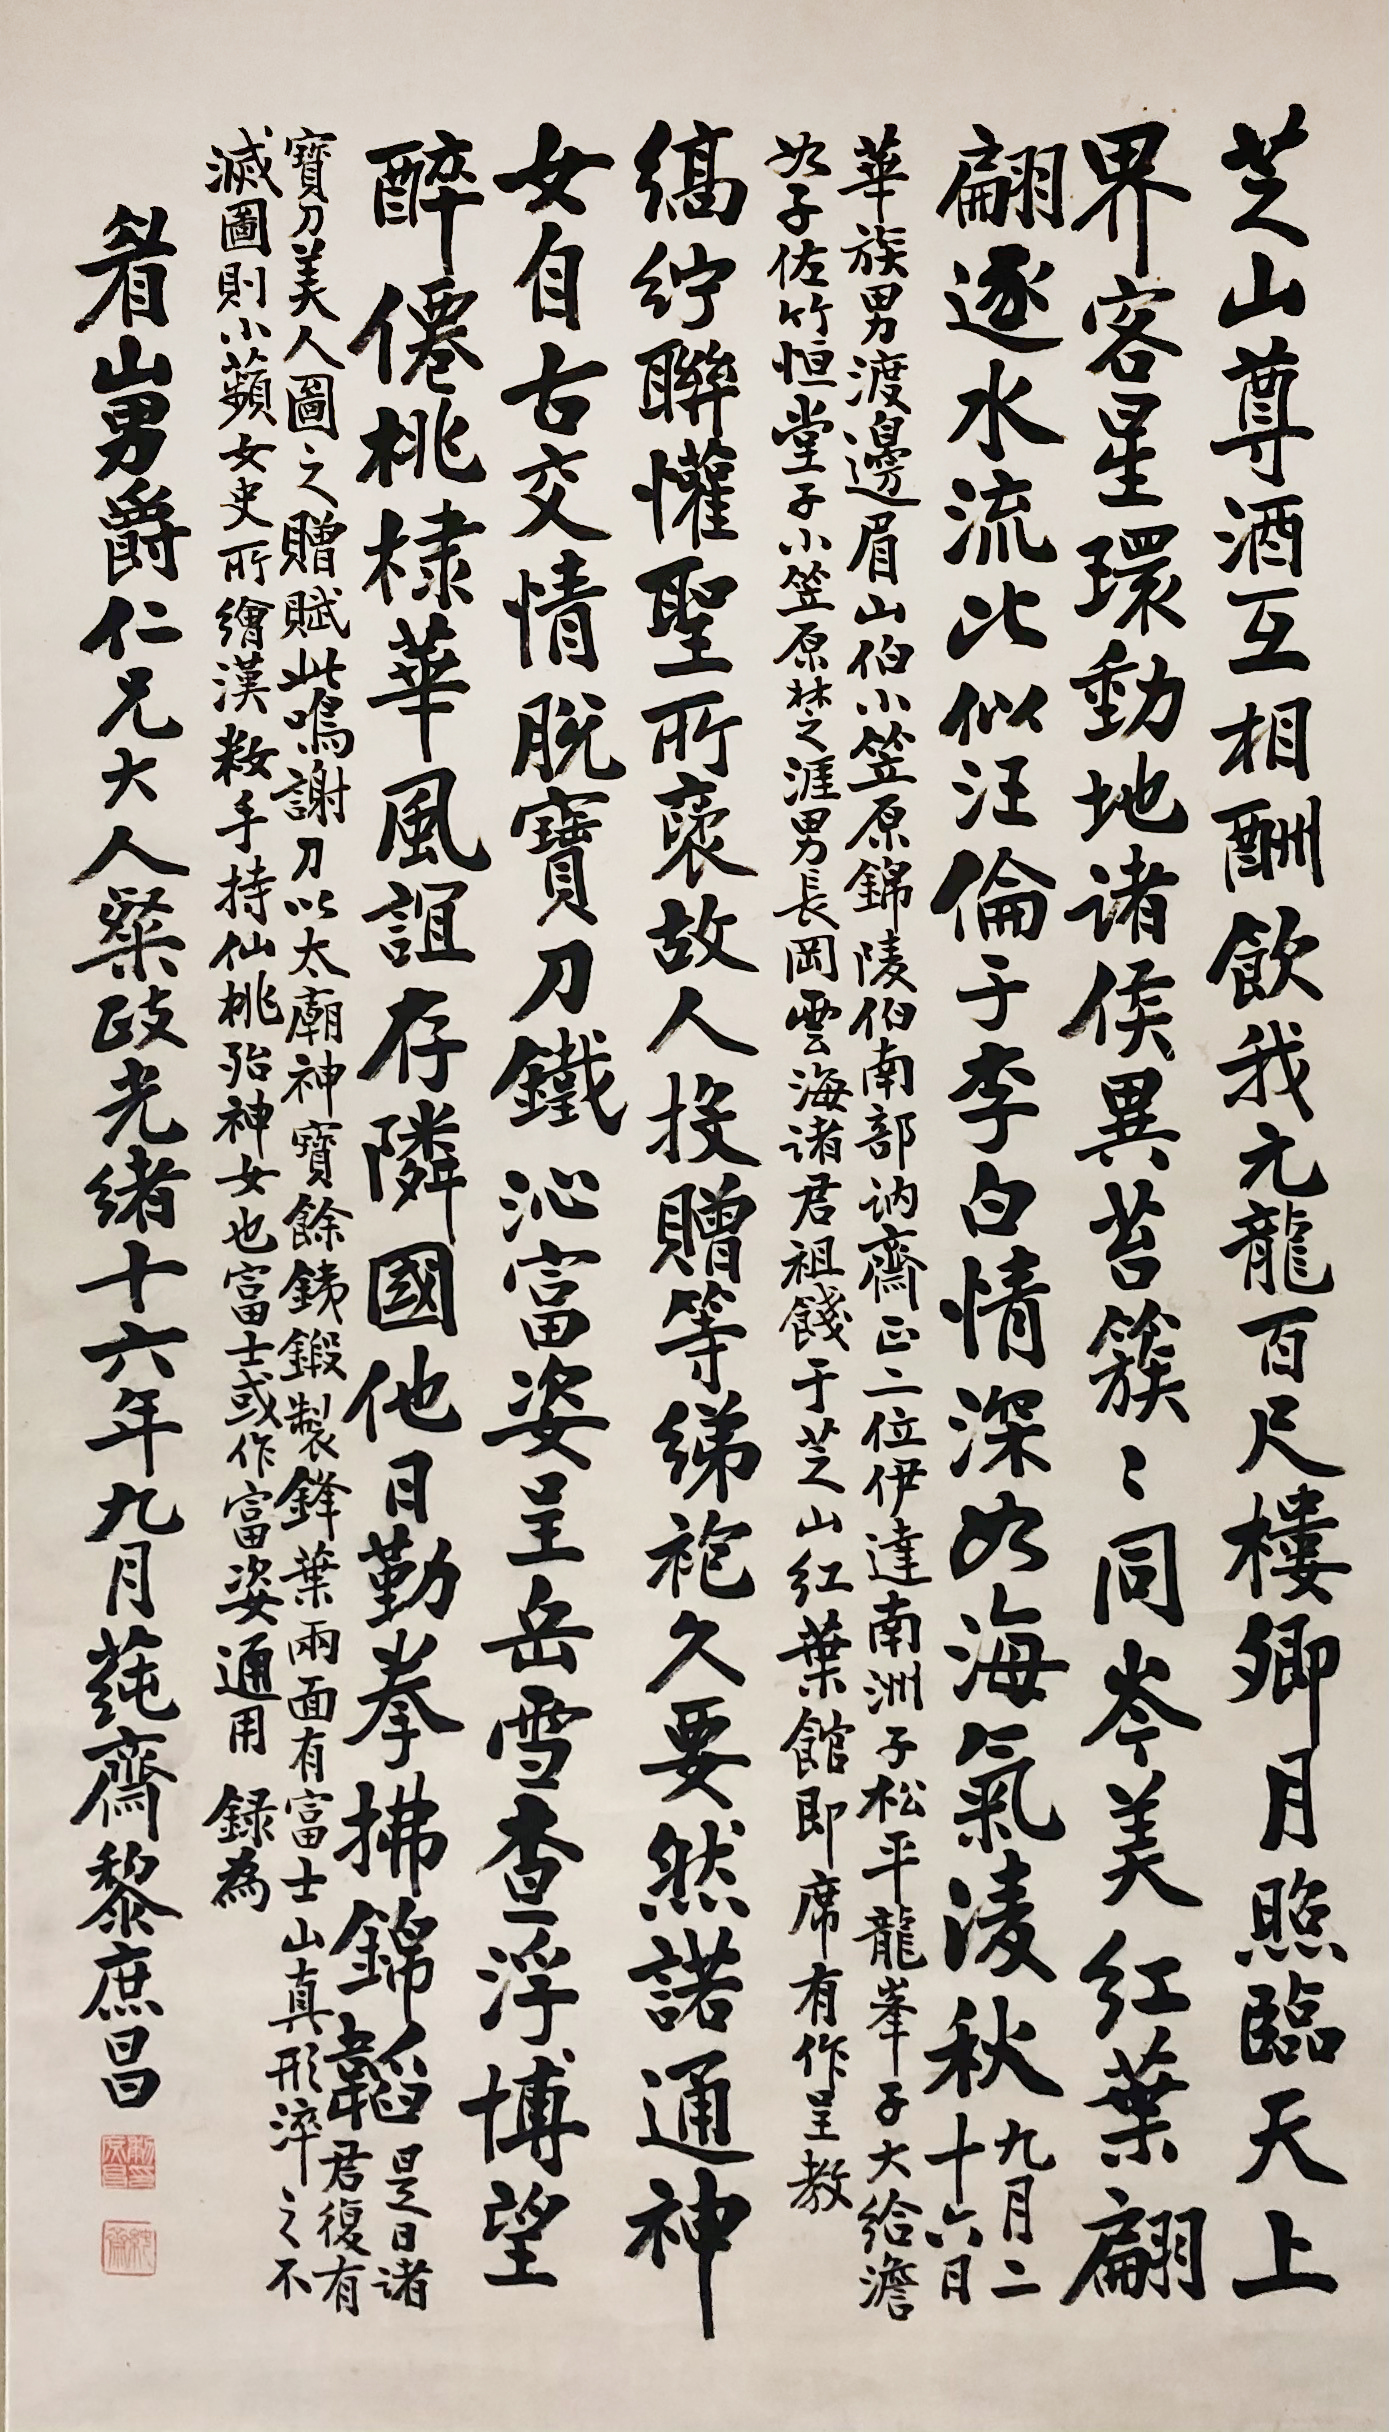 芝山尊酒互相酬飲我元龍百尺樓卿月照臨天上
界客星環動地諸侯異苔簇〻同岑美紅葉翩
翩逐水流比似汪倫于李白情深如海氣淩秋
九月二
十六日
華族男渡邊眉山伯小笠原錦陵伯南部訥齋正二位伊達南洲子松平龍峯子大給澹
如子佐竹恒堂子小笠原梦涯男長岡雲海諸君祖餞于芝山紅葉館即席有作呈教
縞紵聯懽聖所褎故人投贈等綈袍久要然諾通神
女自古交情脫寶刀鐵沁富姿呈岳雪查浮博望
醉僊桃棣華風誼存隣國他日勤拳拂錦韜
是日諸
君復有
寶刀美人圖之贈賦此鳴謝刀以太廟神寶餘銕鍛製鋒葉兩面有富士山真形淬之不
滅圖則小蘋女史所繪漢粧手持仙桃殆神女也富士或作富姿通用 録為
眉山男爵仁兄大人粲政光緒十六年九月蒓齋黎庶昌